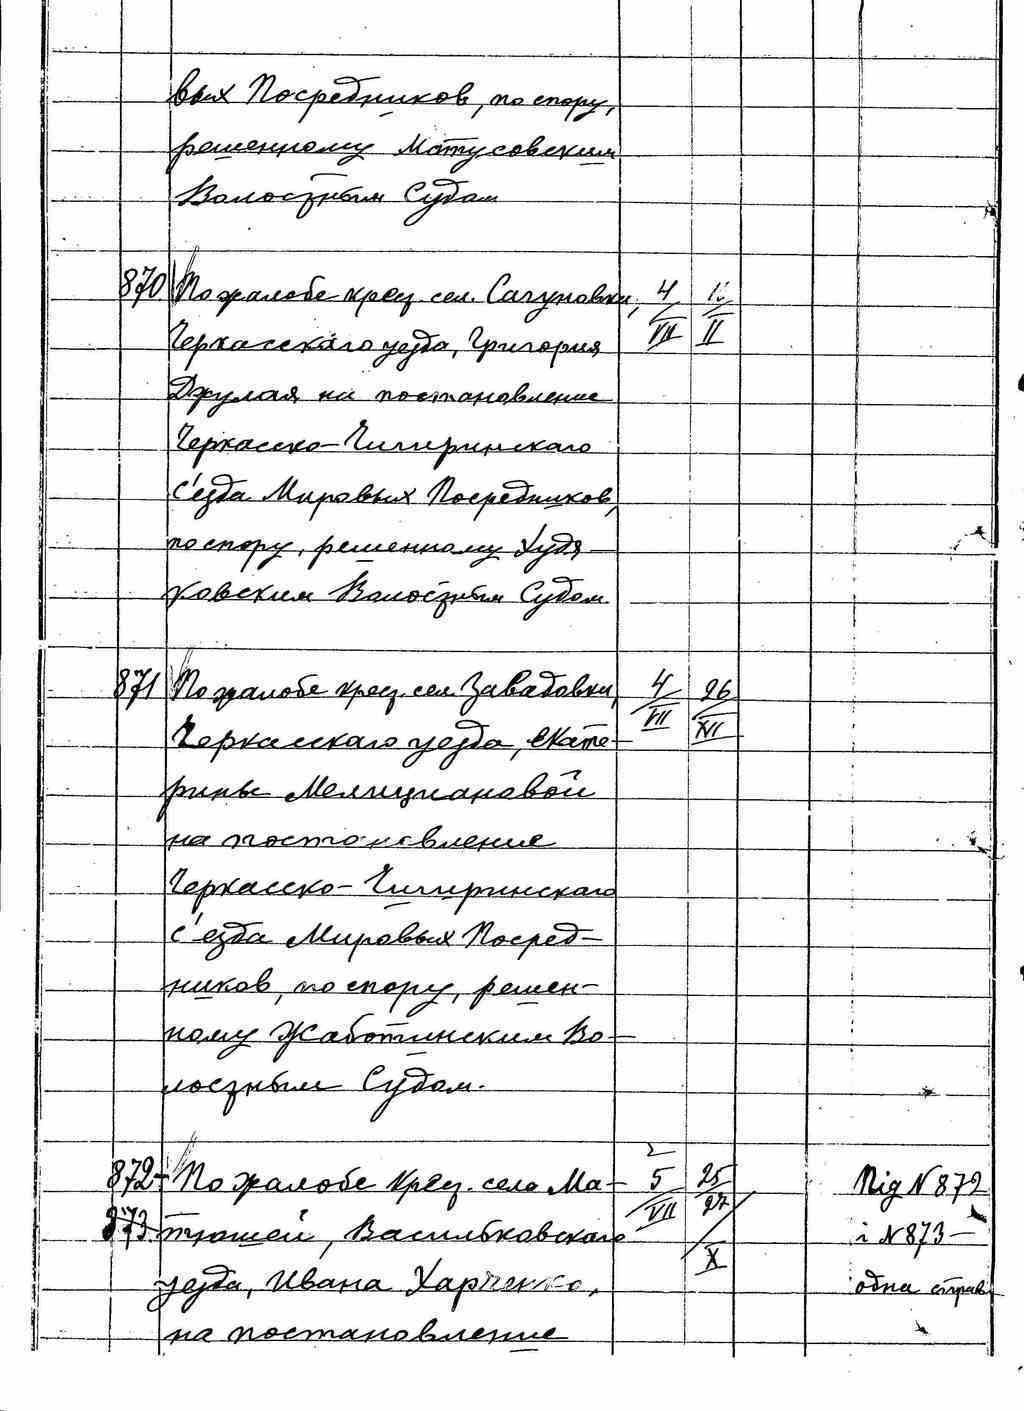 вых Посредников, по спору,
решенному Матусовским
Волостным Судом
870 По жалобе крест. сел. Сагуновки, 4/VII II
Черкасскаго уезда, Григория
Джулая на постановление
Черкасско-Чигиринскаго
с'езда Мировых Посредников,
по спору, решенному Худя-
ковским Волостным Судом
871 По жалобе крест. сел. Завадовки, 4/VII 26/XII
Черкасскаго уезда, Екате-
рины Мелициановой
на постановление
Черкасско-Чигиринскаго
с'езда Мировых Посред-
ников, по спору, решен-
ному Жаботинским Во-
лостным Судом.
872- По жалобе крест. села Ма- 5/VII 25/27 Під N 872
873 трошей, Васильковскаго X і N 873 -
уезда, Ивана Харченко, одна справ
на постановление